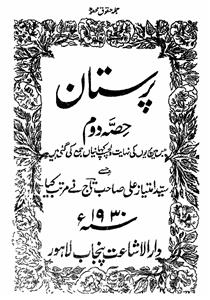 جملہ حقوق محفوظ
پرستان
حصّہ دوم
جس میں پریوں کی نہایت دلچسپ کہانیاں جمع کی گئی ہیں
جسے
سید امتیاز علی صاحب تاج نے مرتب کیا
سنہ ۱۹۳۰ء
دارالاشاعت پنجاب لاہور